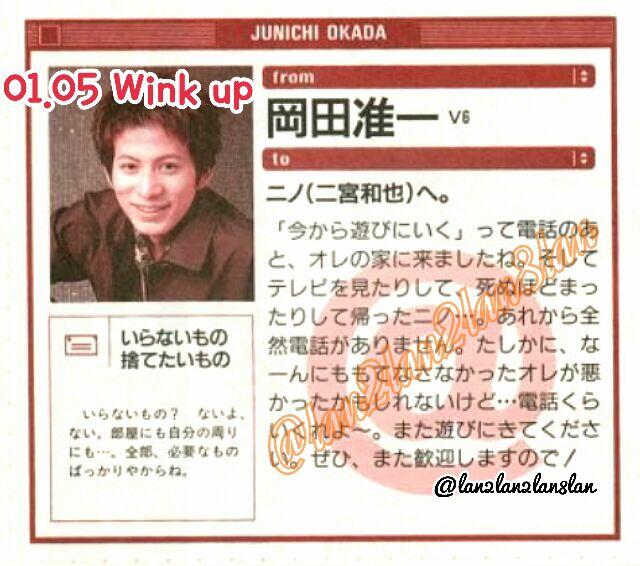 JUNICHI OKADA
01.05 Wink up
from
岡田准一 V6
to
ニノ(二宮和也)へ。
「今から遊びにいく」って電話のあ
と、オレの家に来ましたね。そして
テレビを見たりして、死ぬほどまっ
たりして帰ったニノ…。あれから全
然電話がありません。たしかに、な
ーんにももてなさなかったオレが悪
かったかもしれないけど…電話くら
いくれよ〜。また遊びにきてくださ
い。ぜひ、また歓迎しますので!
いらないもの
捨てたいもの
いらないもの? ないよ、
ない。部屋にも自分の周り
にも…。全部、必要なもの
ばっかりやからね。
@lan2lan2lan8lan
@lan2lan2lan8lan